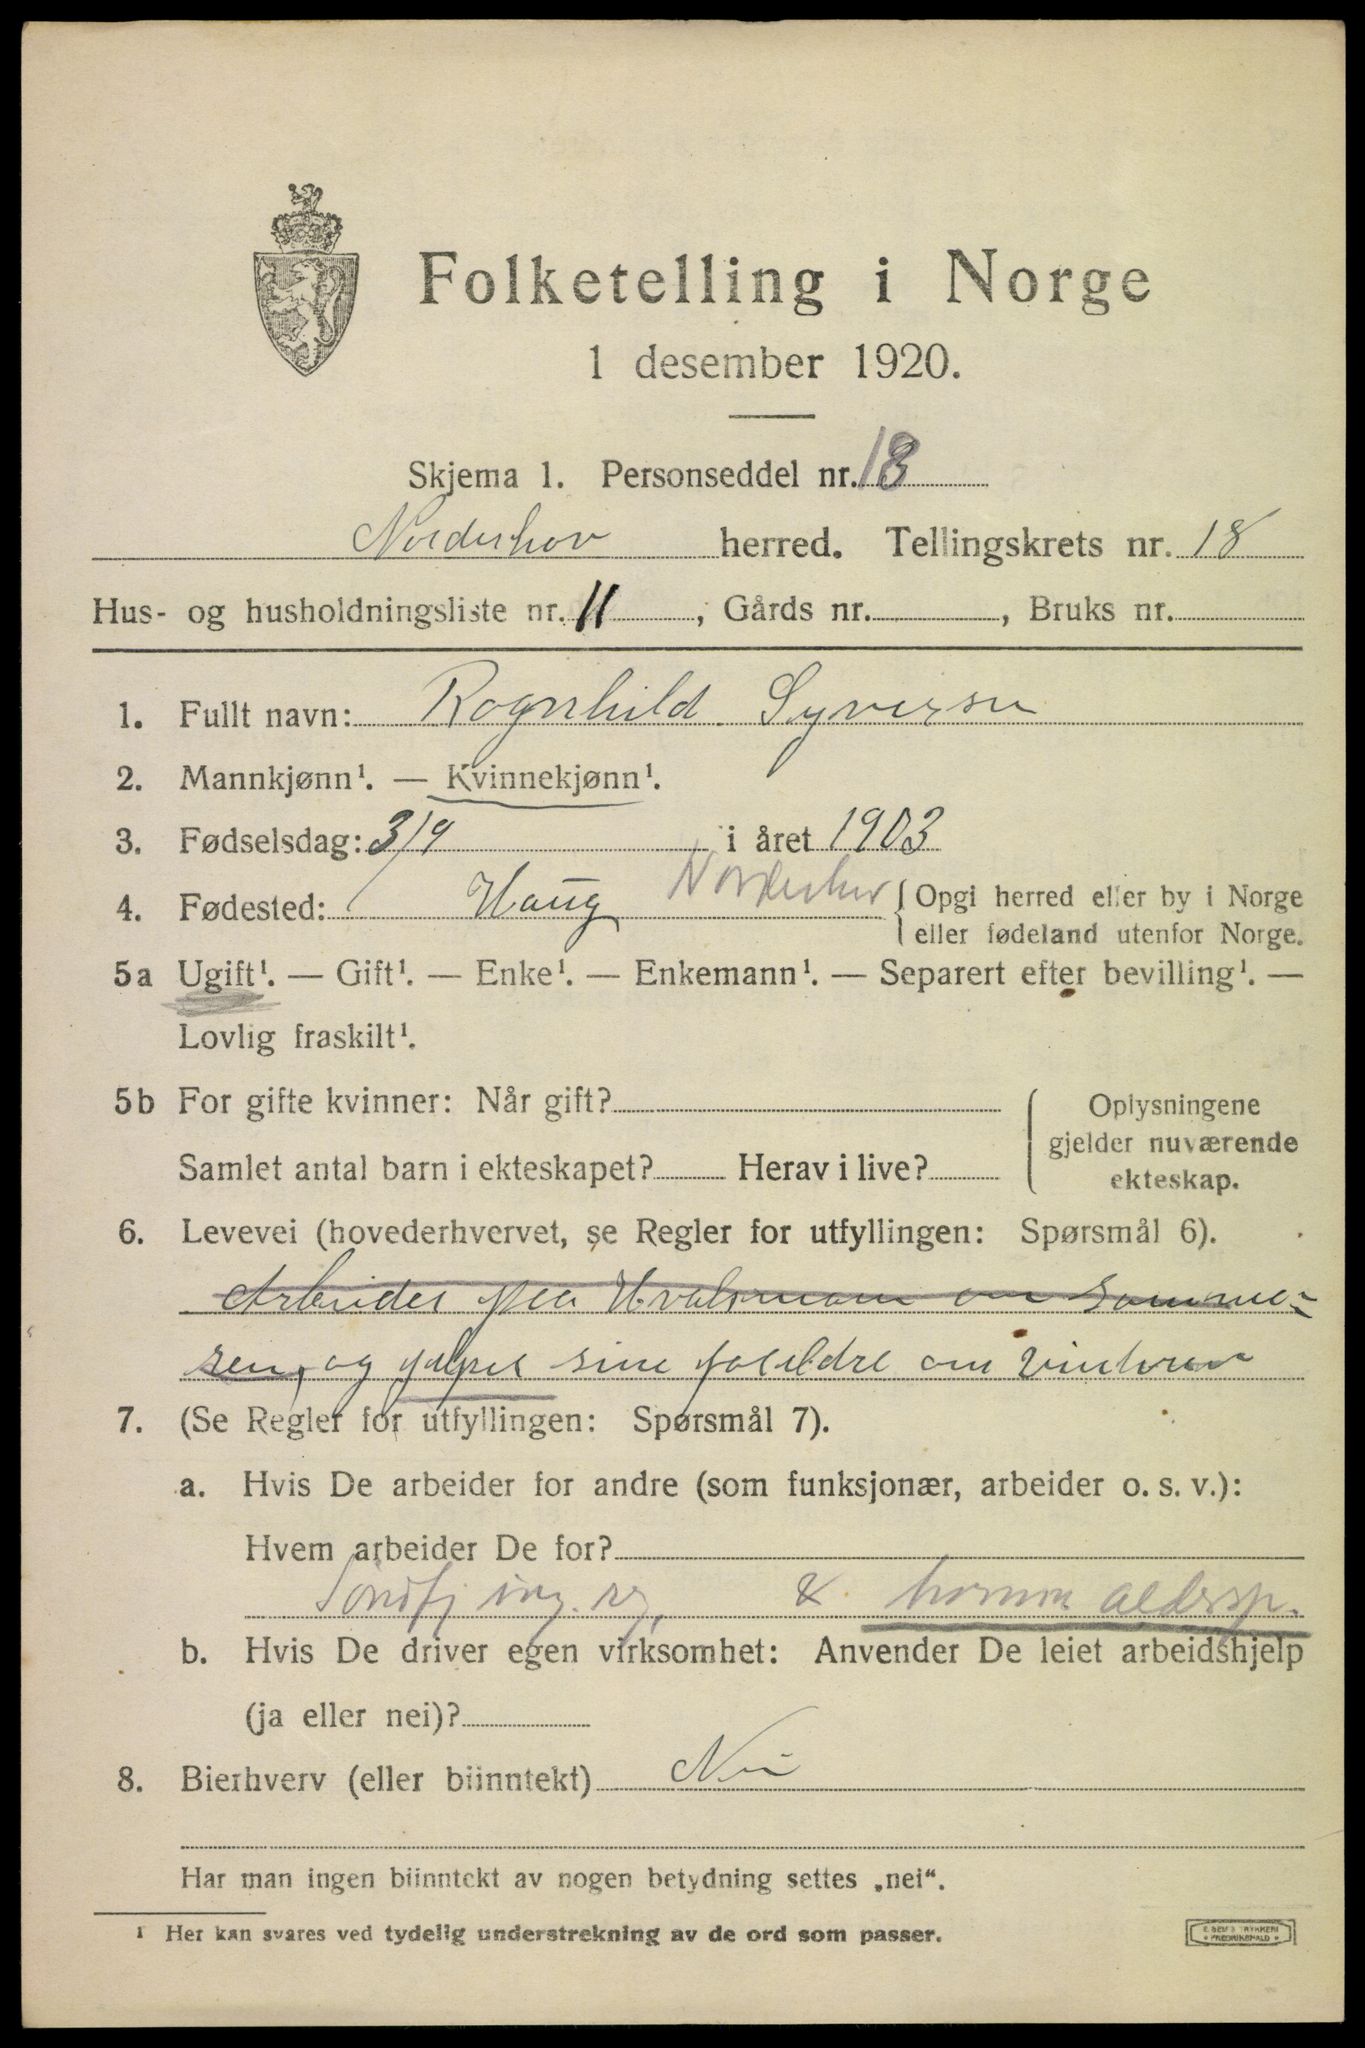 Folketelling i Norge
1 desember 1920.
Skjema 1. Personseddel nr. 18
Norderhov herred. Tellingskrets nr. 18
Hus- og husholdningsliste nr. 11, Gårds nr. , Bruks nr.
1. Fullt navn: Ragnhild Syversen
2. Mannkjønn¹. — Kvinnekjønn¹.
3. Fødselsdag: 3/9 i året 1903
4. Fødested: Haug Norderhov { Opgi herred eller by i Norge
eller fødeland utenfor Norge.
5a Ugift¹. — Gift¹. — Enke¹. — Enkemann¹. — Separert efter bevilling¹. —
Lovlig fraskilt¹.
5b For gifte kvinner: Når gift?
Samlet antal barn i ekteskapet? Herav i live?
Oplysningene
gjelder nuværende
ekteskap.
6. Levevei (hovederhvervet, se Regler for utfyllingen: Spørsmål 6).
Arbeider paa Hvalsmoen om somme-
ren, og hjelper sine foreldre om Vinteren
7. (Se Regler for utfyllingen: Spørsmål 7).
a. Hvis De arbeider for andre (som funksjonær, arbeider o. s. v.):
Hvem arbeider De for?
&
b. Hvis De driver egen virksomhet: Anvender De leiet arbeidshjelp
(ja eller nei)?
8. Bierhverv (eller biinntekt) Nei
Har man ingen biinntekt av nogen betydning settes „nei“.
¹ Her kan svares ved tydelig understrekning av de ord som passer.
E. SEM'S TRYKKERI
FREDRIKSHALD